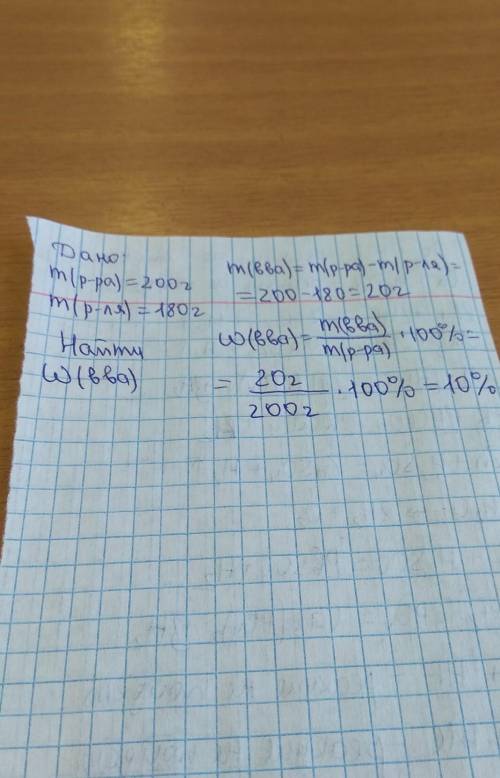 Дано:
m(р-ра)=200г
m(р-ля)=180г
Найти
W(вва)
m(вва)=m(р-ра)-m(р-ля)=
=200-180=20г
W(вва)=m(вва)/m(р-ра)·100%=
=20г/200г·100%=10%